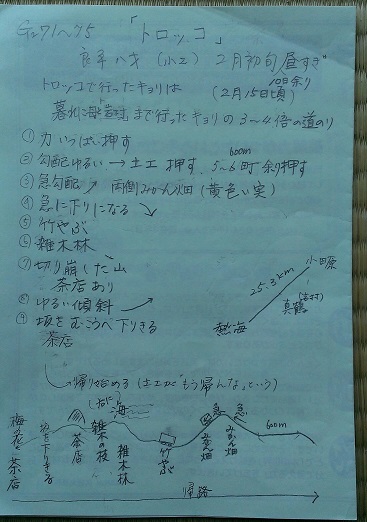 P71〜75 「トロッコ」
良平8才(小2) 2月初旬 昼すぎ
10日余り
トロッコで行ったキョリは (2月15日頃)
まで行ったキョリの3〜4倍の道のり
① 力いっぱい押す
600m
② 勾配ゆるい → 土工 押す 5〜6町余り押す
③ 急勾配 ↗ 両側みかん畑 (黄色い実)
④ 急に下りになる ↘
⑤ 竹やぶ
⑥ 雑木林
⑦ 切り崩した山
茶店あり
⑧ ゆるい傾斜
⑨ 坂をむこうへ下りきる
茶店
小田原
25.3km
真鶴
熱海
の帰り始める (土工が"もう帰んな"という)
海
急 急
600m
梅の花と茶店
坂を下りきる
茶店
雑木の枝
雑木林
竹やぶ
みかん畑
みかん畑
帰路